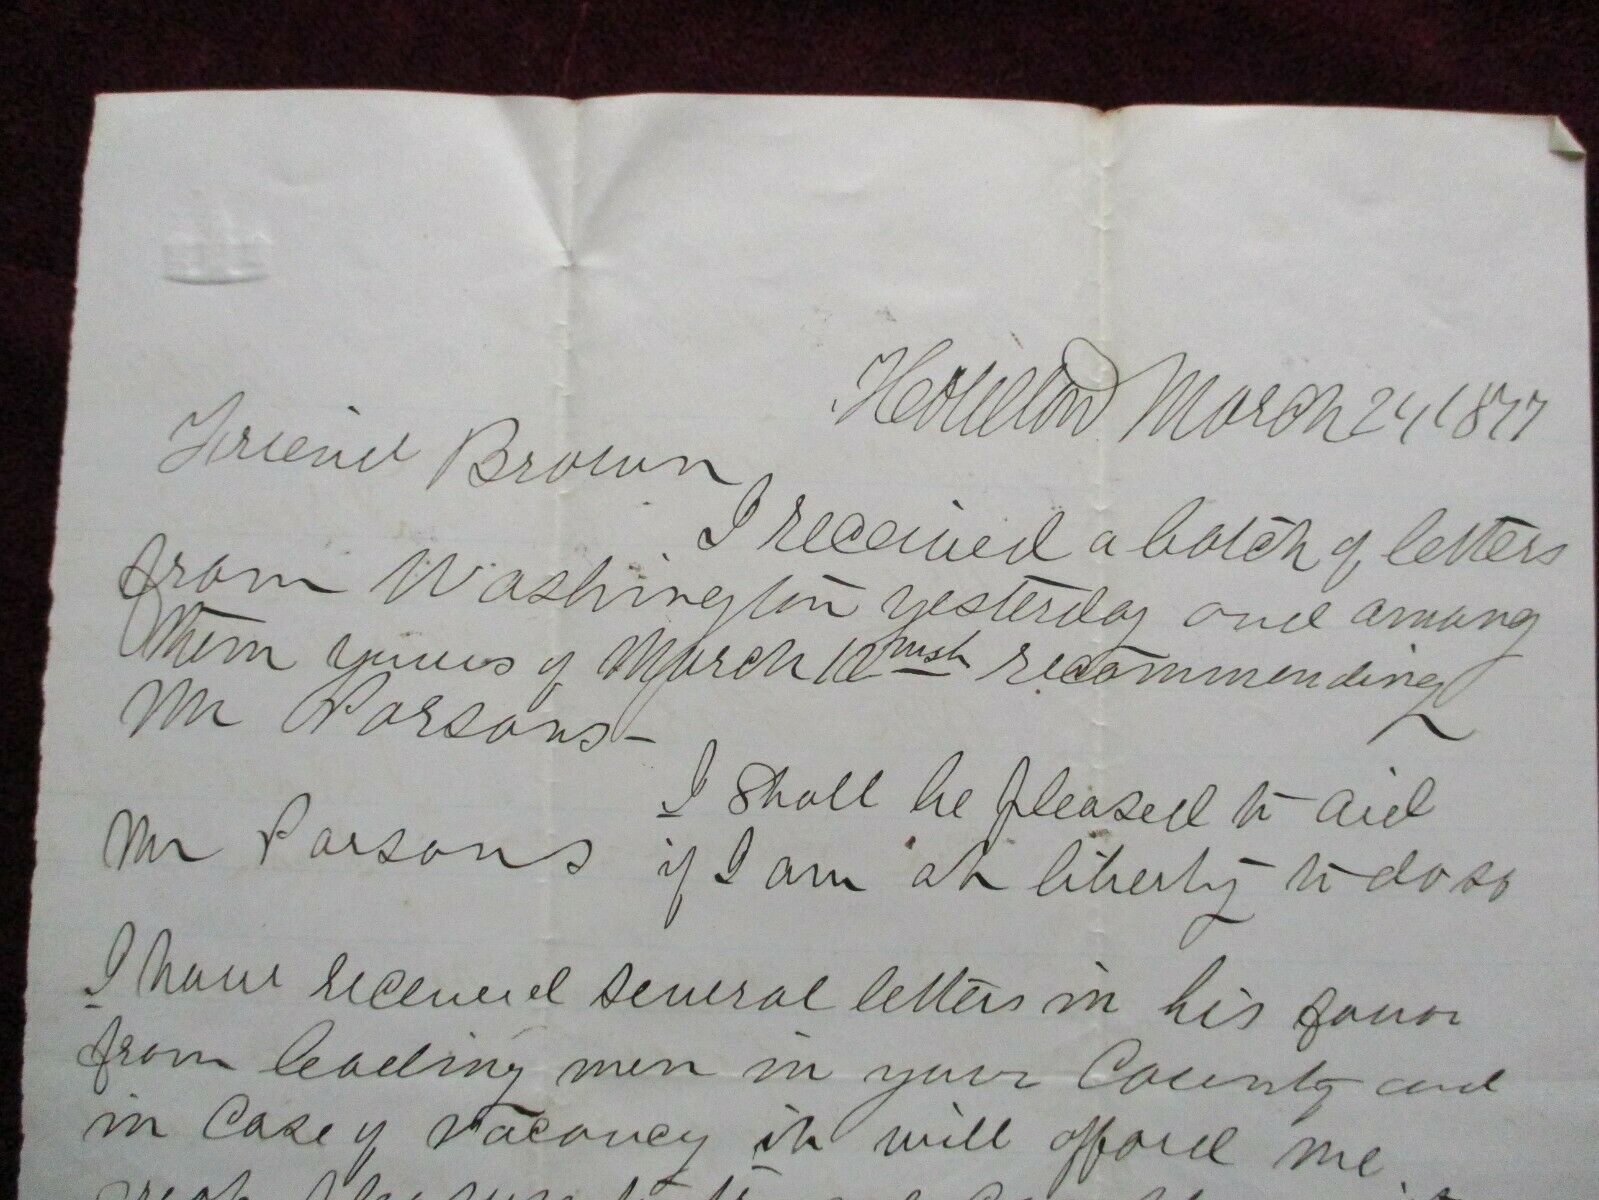 Houlton March 24, 1877
Friend Brown
I received a batch of letters
from Washington yesterday and among
them yours of March 12 inst recommending
Mr Parsons –
I shall be pleased to aid
Mr Parsons if I am at liberty to do so
I have received several letters in his favor
from leading men in your County and
in case of vacancy it will afford me
pleasure to